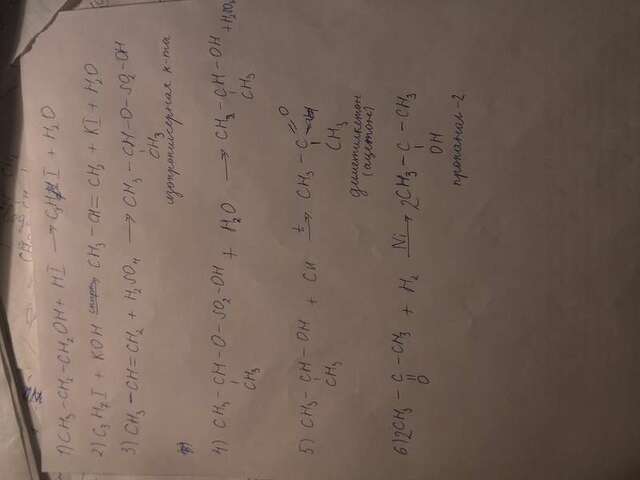 1) CH₃-CH₂-CH₂OH + HI → C₃H₇I + H₂O
2) C₃H₇I + KOH спирт→ CH₃-CH=CH₂ + KI + H₂O
3) CH₃-CH=CH₂ + H₂SO₄ → CH₃-CH-O-SO₂-OH
CH₃
изопропилсерная к-та
4) CH₃-CH-O-SO₂-OH + H₂O → CH₃-CH-OH
CH₃ CH₃
5) CH₃-CH-OH + Cu t→ CH₃-C=O
CH₃ CH₃
диметилкетон
(ацетон)
6) 2CH₃-C-CH₃ + H₂ Ni→ 2CH₃-C-CH₃
O OH
пропанол-2